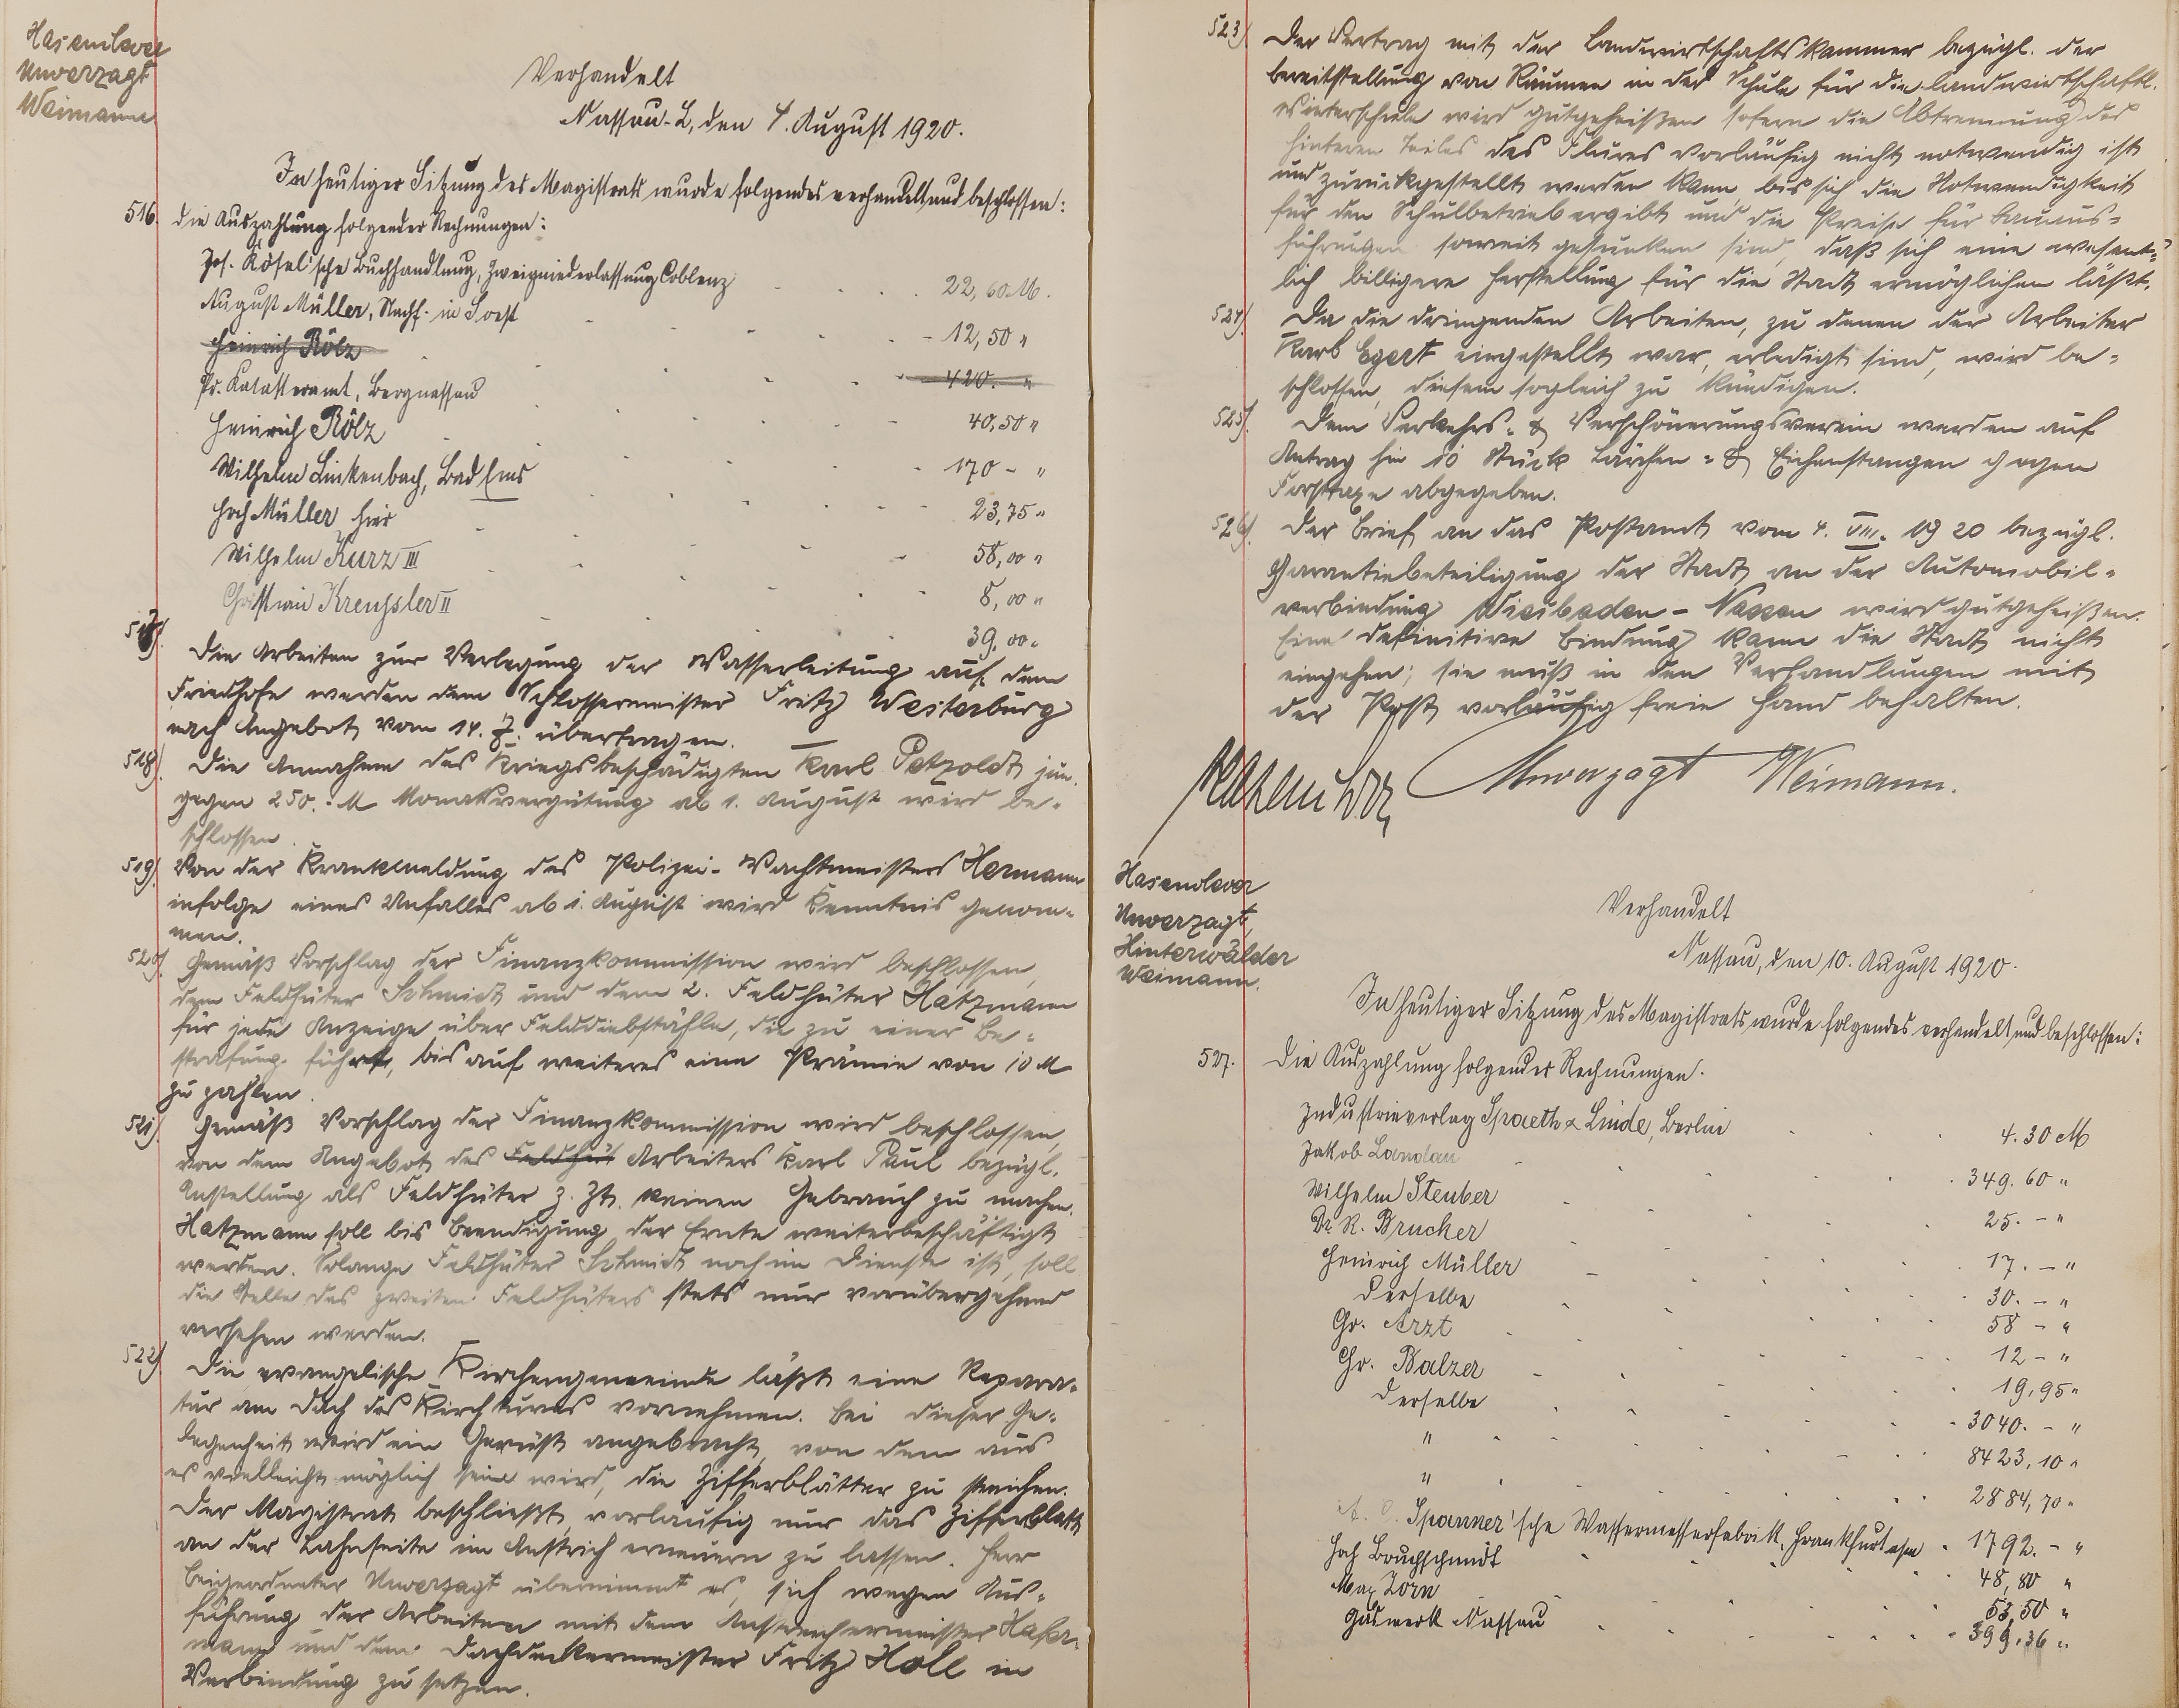 Hasenclever
Unverzagt
Weimann
Verhandelt
Nassau-L, den 4. August 1920.
In heutiger Sitzung des Magistrats wurde folgendes verhandelt und beschlossen:
516. die Auszahlung folgender Rechnungen:
Jos. Kösel'sche Buchhandlung, Zweigniederlassung Coblenz 22,60 M.
August Müller, Nachf. in Soest 12,50 "
Heinrich Rölz 420. "
Pr. Katasteramt, Bergnassau 40,50 "
Heinrich Rölz 170 - "
Wilhelm Linkenbach, Bad Ems 23,75 "
Hch Müller, hier 58,00 "
Wilhelm Kurz III 8,00 "
Christian Kreussler II 39,00 "
517). Die Arbeiten zur Verlegung der Wasserleitung auf dem
Friedhofe werden dem Schlossermeister Fritz Westerburg
nach Angebot vom 14. 7. übertragen.
518). Die Annahme des Kriegsbeschädigten Karl Petzoldt jun.
gegen 250.- M Monatsvergütung ab 1. August wird be-
schlossen.
519). Von der Krankmeldung des Polizei-Wachtmeisters Hermann
infolge eines Unfalles ab 1. August wird Kenntnis genom-
men.
520). Gemäß Vorschlag der Finanzkommission wird beschlossen,
dem Feldhüter Schmidt und dem 2. Feldhüter Hatzmann
für jede Anzeige über Felddiebstähle, die zu einer Be-
strafung führt, bis auf weiteres eine Prämie von 10 M
zu zahlen.
521). Gemäß Vorschlag der Finanzkommission wird beschlossen,
von dem Angebot des Feldhüt Arbeiters Karl Paul bezügl.
Anstellung als Feldhüter z. Zt. keinen Gebrauch zu machen.
Hatzmann soll bis Beendigung der Ernte weiterbeschäftigt
werden. Solange Feldhüter Schmidt noch im Dienste ist, soll
die Stelle des zweiten Feldhüters stets nur vorübergehend
versehen werden.
522). Die evangelische Kirchengemeinde läßt eine Repara-
tur am Dach des Kirchturms vornehmen. Bei dieser Ge-
legenheit wird ein Gerüst angebracht, von dem aus
es vielleicht möglich sein wird, die Zifferblätter zu streichen.
Der Magistrat beschließt, vorläufig nur das Zifferblatt
an der Lahnseite im Anstrich erneuern zu lassen. Herr
Beigeordneter Unverzagt übernimmt es, sich wegen Aus-
führung der Arbeiten mit dem Anstreichermeister Hafer-
mann und dem Dachdeckermeister Fritz Holl in
Verbindung zu setzen.
523). Der Vertrag mit der Landwirtschaftskammer bezügl. der
Bereitstellung von Räumen in der Schule für die landwirtschaftl.
Winterschule wird gutgeheißen sofern die Abtrennung des
hinteren Teiles des Flures vorläufig nicht notwendig ist
und zurückgestellt werden kann, bis sich die Notwendigkeit
für den Schulbetrieb ergibt und die Preise für Bauaus-
führungen soweit gesunken sind, daß sich eine wesent-
lich billigere Herstellung für die Stadt ermöglichen läßt.
524). Da die dringenden Arbeiten, zu denen der Arbeiter
Karl Egert eingestellt war, erledigt sind, wird be-
schlossen, diesem sogleich zu kündigen.
525). Dem Verkehrs- & Verschönerungsverein werden auf
Antrag hin 10 Stück Lärchen- & Eichenstangen gegen
Forsttaxe abgegeben.
526). Der Brief an das Postamt vom 4. VIII. 1920 bezügl.
Garantiebeteiligung der Stadt an der Automobil-
verbindung Wiesbaden - Nassau wird gutgeheißen.
Eine definitive Bindung kann die Stadt nicht
eingehen; sie muß in den Verhandlungen mit
der Post vorläufig freie Hand behalten.
Hasenclever Unverzagt Weimann.
Hasenclever
Unverzagt,
Hinterwälder
Weimann.
Verhandelt
Nassau, den 10. August 1920.
In heutiger Sitzung des Magistrats wurde folgendes verhandelt und beschlossen:
527. Die Auszahlung folgender Rechnungen.
Industrieverlag Spaeth & Linde, Berlin 4.30 M
Jakob Landau 349.60 "
Wilhelm Steuber 25. - "
Dr. R. Brucher 17. - "
Heinrich Müller 30. - "
Derselbe 58 - "
Chr. Arzt 12 - "
Chr. Balzer 19,95 "
Derselbe 3040. - "
" 8423,10 "
" 2884,70 "
A. C. Spanner'sche Wassermesserfabrik, Frankfurt a/m 1792. - "
Hch Bruchschmidt 48,80 "
Max Zorn 53,50 "
Gaswerk Nassau 399.36 "